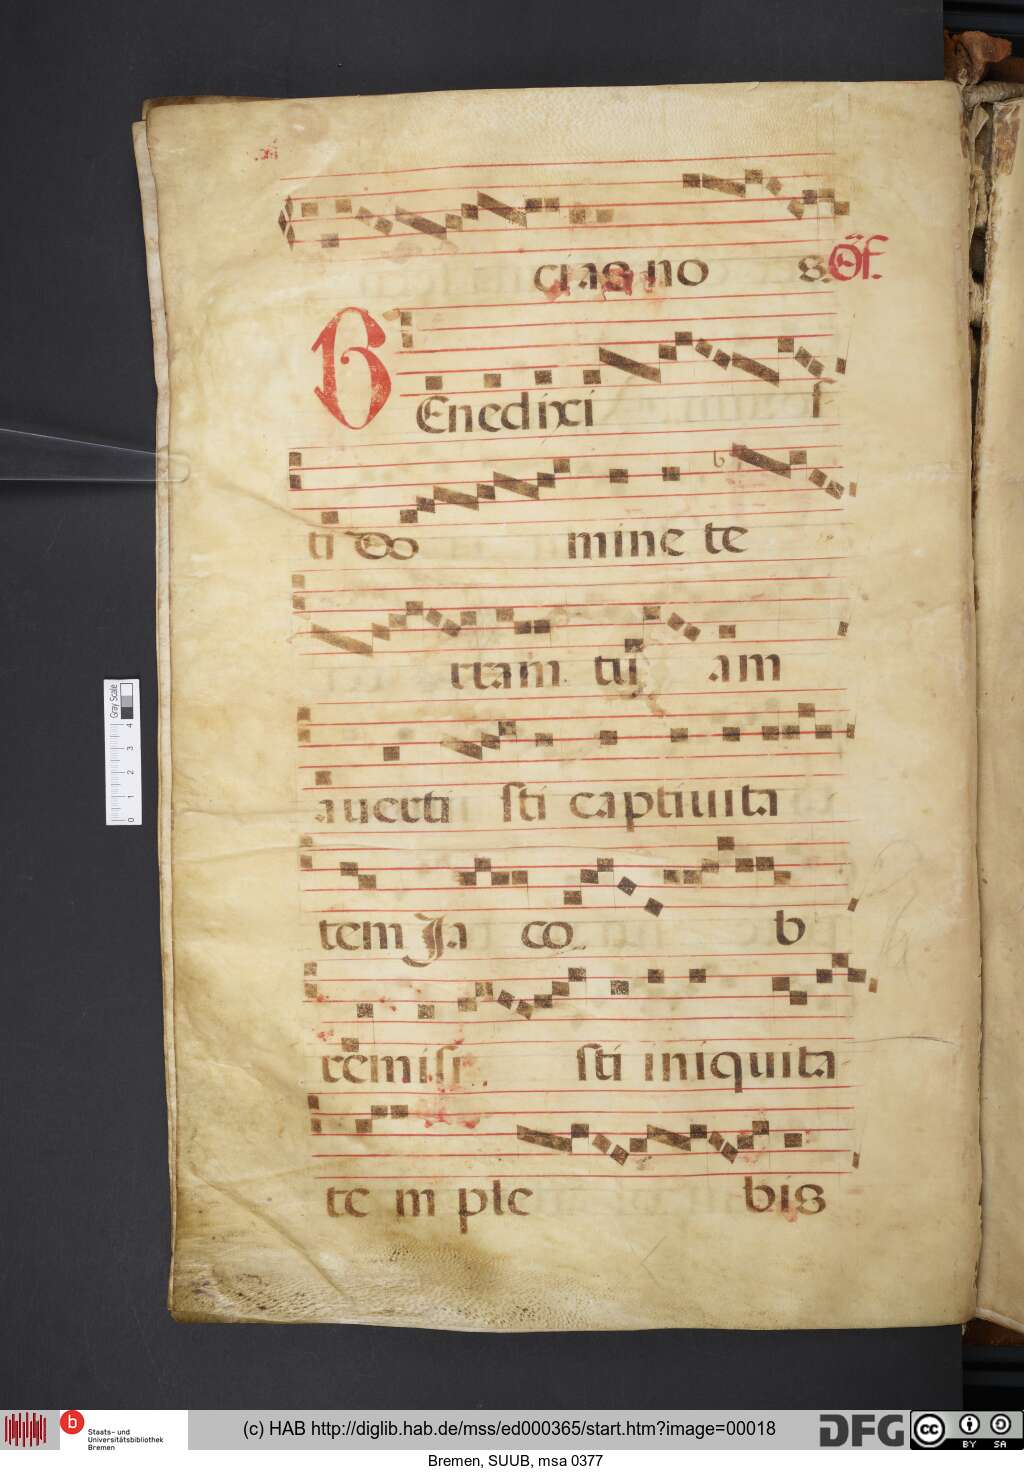 cias no s. Off.
BEnedixi s
ti Do mine te
rram tu am
auerti sti captiuita
tem Ja co b
remisi sti iniquita
te m ple bis
Gray Scale
0 1 2 3 4
b Staats- und
Universitätsbibliothek
Bremen
(c) HAB http://diglib.hab.de/mss/ed000365/start.htm?image=00018
DFG
cc BY SA
Bremen, SUUB, msa 0377